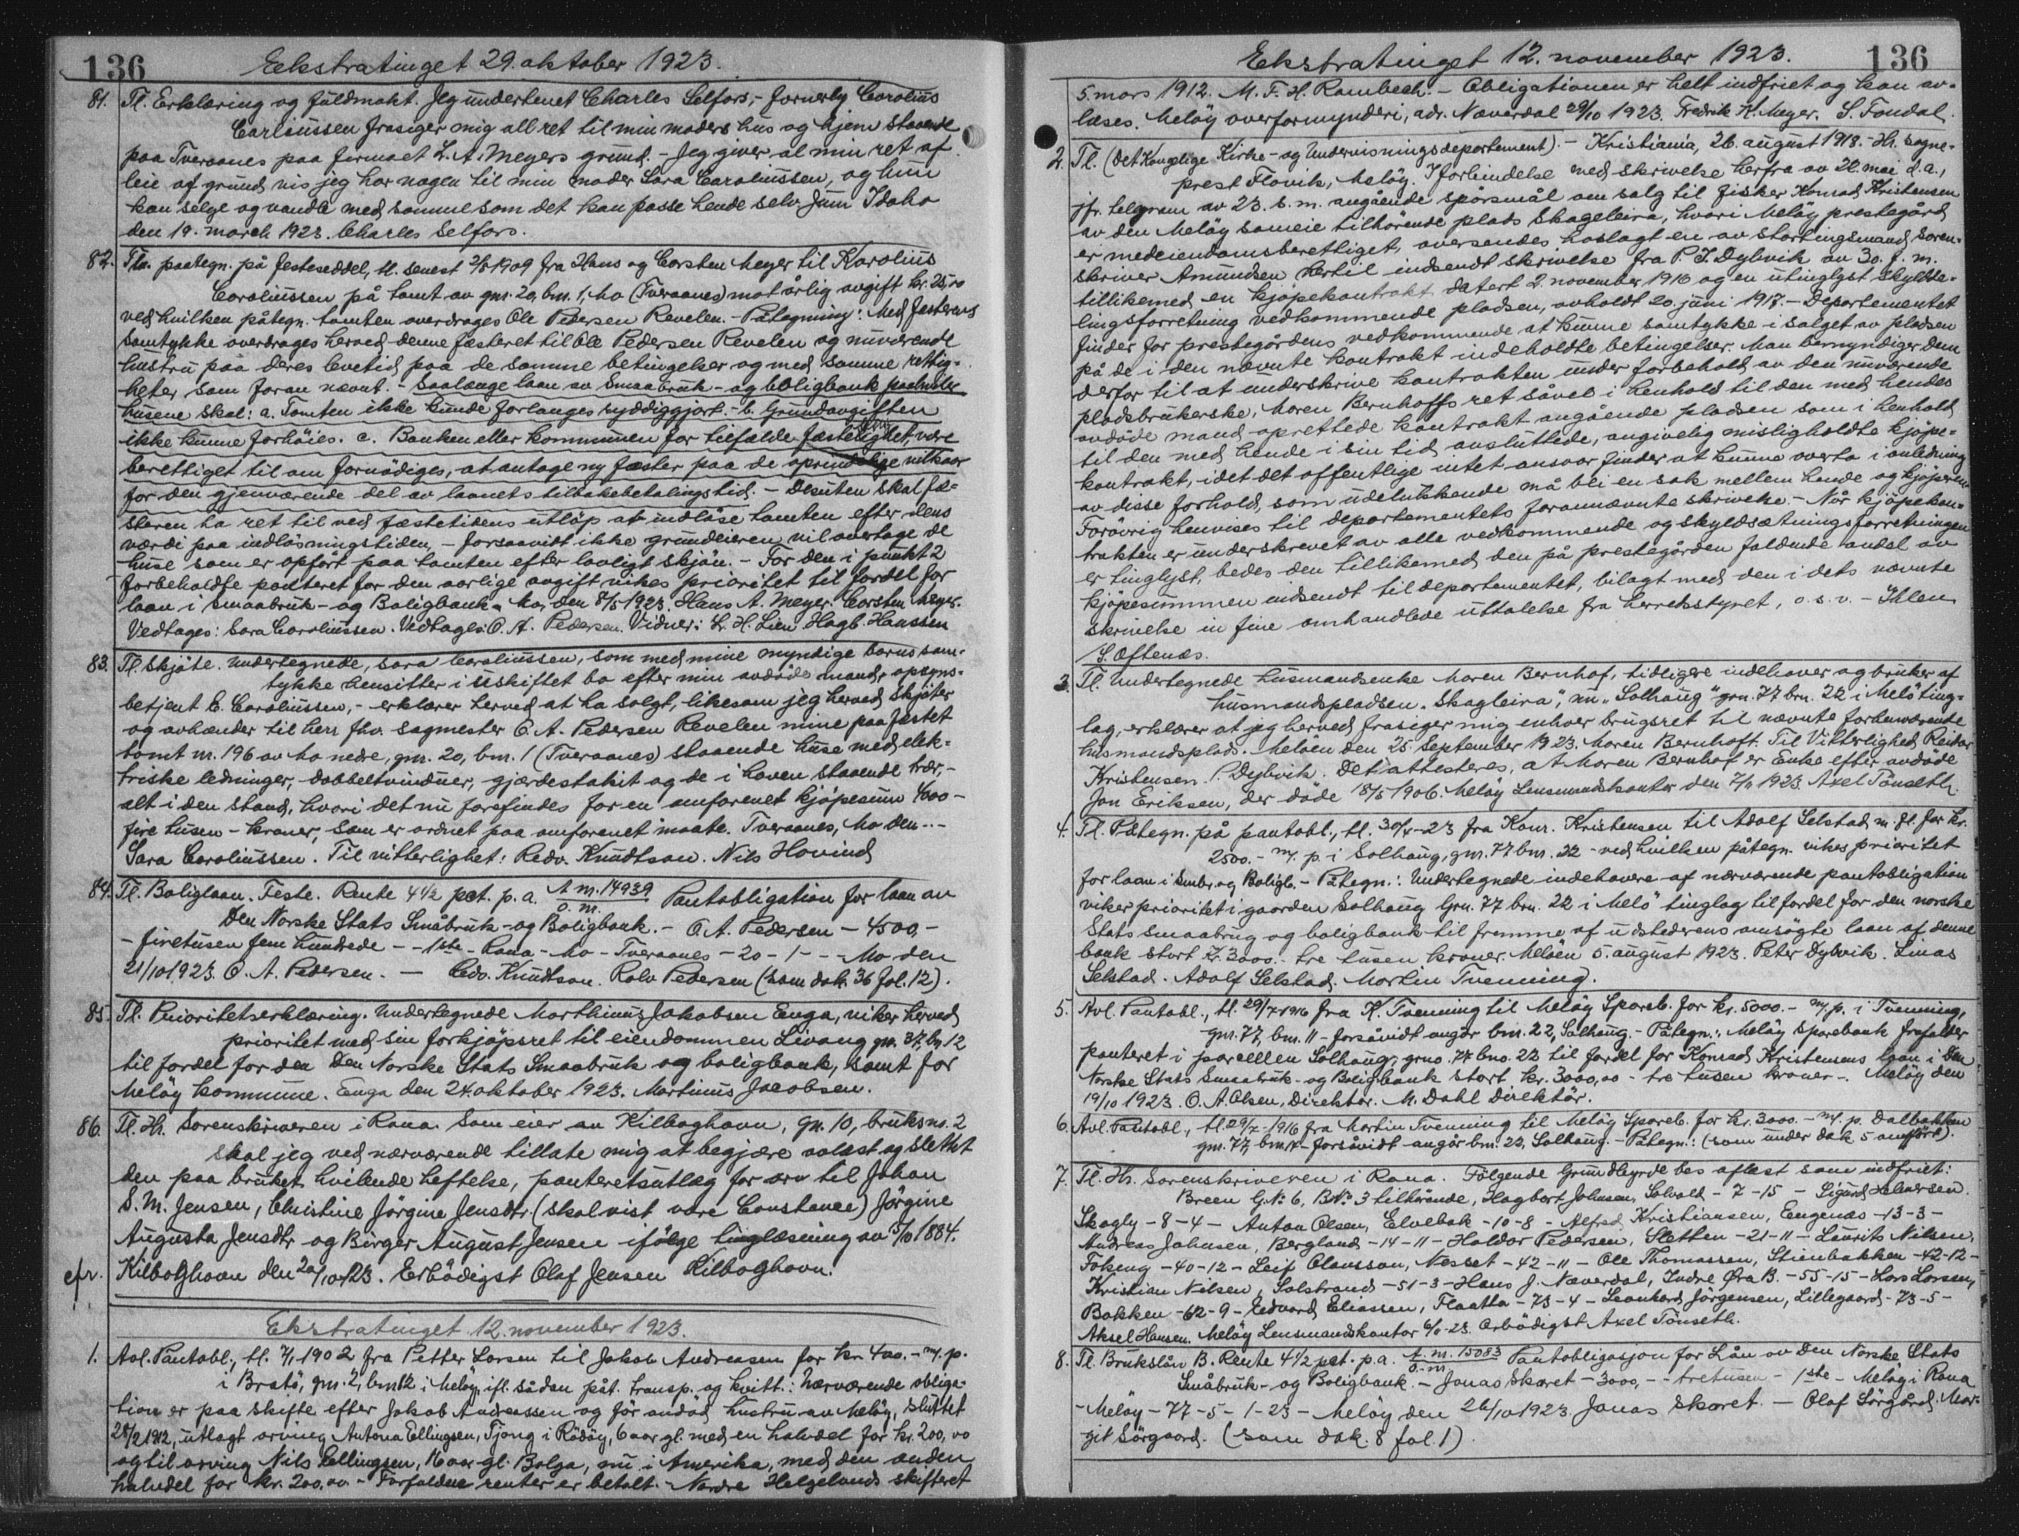 136
Ekstratinget 29. oktober 1923.
81. Tl. Erklæring og fuldmakt. Jeg undertenet Charles Selfors,- fornerly Carolius
Carliussen frasiger mig all ret til min moders hus og hjem staaende
paa Tveraanes paa firmaet L. A. Meyers grund. - Jeg giver al min ret af
leie af grund vis jeg har nogen til min moder Sara Caroliussen, og hun
kan selge og vandle med samme som det kan passe hende selv. Juni Idaho
den 19. march 1923. Charles Selfors.
82. Tl. paategn. på festeseddel, tl. senest 2/8 1909 fra Hans og Corsten Meyer til Karolius
Caroliussen på tomt av gnr. 20, bnr. 1, Mo (Tveraanes) mot årlig avgift kr. 25,00
ved hvilken påtegn. tomten overdrages Ole Pedersen Revelen. - Påtegning: Med festerens
samtykke overdrages herved denne fæsteret til Ole Pedersen Revelen og nuværende
hustru paa deres levetid paa de samme betingelser og med samme rettig-
heter som foran nævnt. - Saalænge laan av Smaabruk- og boligbank paahviler
husene skal: a. Tomten ikke kunde forlanges ryddiggjort. - b. Grundavgiften
ikke kunne forhöies. c. Banken eller kommunen for tilfælde fæsteledighet, være
berettiget til om fornödiges, at antage ny fæster paa de oprindelige vilkaar
for den gjenværende del av laanets tilbakebetalingstid. - Desuten skal fæ-
steren ha ret til ved fæstetidens utlöp at indlöse tomten efter dens
værdi paa indlösningstiden, - forsaavidt ikke grundeieren vil overtage de
huse som er opfört paa tomten efter lovligt skjön. - For den i punkt 2
forbeholdte panteret for den aarlige avgift vikes prioritet til fordel for
laan i Smaabruk- og Boligbank. Mo, den 8/5 1923. Hans A. Meyer. Corsten Meyer.
Vedtages: Sara Caroliussen. Vedtages: O. A. Pedersen. Vidner: L. H. Lien Hagb. Hanssen
83. Tl. Skjöte. Undertegnede, Sara Caroliussen, som med mine myndige barns sam-
tykke hensitter i uskiftet bo efter min avdöde mand, opsyns-
betjent C. Caroliussen, - erklærer herved at ha solgt, likesom jeg herved skjöter
og avhænder til herr fhv. sagmester O. A. Pedersen Revelen mine paa fæstet
tomt nr. 196 av Mo nedre, gnr. 20, bnr. 1 (Tveraanes) staaende huse med elek-
triske ledninger, dobbeltvinduer, gjærdestakit og de i haven staaende trær, -
alt i den stand, hvori det nu forefindes for en omforenet kjöpesum 4000 -
fire tusen - kroner, som er ordnet paa omforenet maate. Tveraanes, Mo den - -
Sara Caroliussen. Til vitterlighet: Redv. Knudtson. Nils Hovind
84. Tl. Boliglaan. Feste. Rente 4 1/2 pct. p. a. A. m. 14939 / O. m. Pantobligation for laan av
Den Norske Stats Småbruk- og Boligbank. - O. A. Pedersen - 4500,-
- firetusen fem hundrede - - 1ste - Rana - Mo - Tveraanes - 20 - 1 - - Mo den
21/10 1923 O. A. Pedersen. - Edv. Knudtson. Rolv Pedersen (som dok. 36 fol. 12).
85. Tl. Prioritetserklæring. Undertegnede Marthinus Jakobsen Enga, viker herved
prioritet med sin forkjöpsret til eiendommen Livang gn. 37, bn. 12
til fordel for den Den Norske Stats Smaabruk og boligbank, samt for
Meløy kommune. Enga den 24. oktober 1923. Martinus Jacobsen.
86. Tl. Hr. Sorenskriveren i Rana. Som eier av Kilboghavn, gn. 10, bruksno. 2
skal jeg ved nærværende tillate mig at begjære avlæst og slettet
den paa bruket hvilende heftelse, panteretsutlæg for arv til Johan
S. M. Jensen, Christine Jörgine Jensdtr. (skal vist være Constance) Jörgine
Augusta Jensdtr og Birger August Jensen ifölge tinglæsning av 15/10 1884.
cfr. Kilboghavn den 20/10 1923. Erbödigst Olaf Jensen Kilboghavn.
Ekstratinget 12. november 1923.
1. Avl. Pantobl., tl. 7/1 1902 fra Petter Larsen til Jakob Andreasen for kr. 400.- m/. p.
i Bratö, gnr. 2, bnr. 12 i Meløy, ifl. sådan påt. transp. og kvitt.: Nærværende obliga-
tion er paa skifte efter Jakob Andreassen og før avdöd hustru av Meløy, sluttet
28/2 1912, utlagt arving Antona Ellingsen, Tjong i Rödöy, 6 aar gl. med en halvdel for kr. 200,00
og til arving Nils Ellingsen, 16 aar gl. Bolga, nu i Amerika, med den anden
halvdel for kr. 200,00. - Forfaldne renter er betalt. - Nordre Helgelands skifteret
136
Ekstratinget 12. november 1923.
5. mars 1912. M. F. H. Rambech. - Obligationen er helt indfriet og kan av-
læses. Meløy overformynderi, adr. Næverdal 29/10 1923. Fredrik K. Meyer. S. Fondal.
2. Tl. (Det Kongelige Kirke- og Undervisningsdepartement). - Kristiania, 26. august 1918. - Hr. sogne-
prest Flovik, Meløy. I forbindelse med skrivelse herfra av 22. mai d. a.,
jfr. telegram av 23. s. m. angående spörsmål om salg til fisker Konrad Kristensen
av den Meløy sameie tilhörende plads Skageleira, hvori Meløy prestegård
er medeiendomsberettiget, oversendes hoslagt en av stortingsmand, soren-
skriver Amundsen hertil indsendt skrivelse fra P. J. Dybvik av 30. f. m.
tillikemed en kjöpekontrakt datert 2. november 1916 og en utinglyst skylde-
lingsforretning vedkommende pladsen, avholdt 20. juni 1917. - Departementet
finder for prestegårdens vedkommende at kunne samtykke i salget av pladsen
på de i den nævnte kontrakt indeholdte betingelser. Man bemyndiger Dem
derfor til at underskrive kontrakten under forbehold av den nuværende
pladsbrukerske, Maren Bernhoffs ret såvel i henhold til den med hendes
avdöde mand oprettede kontrakt angående pladsen som i henhold
til den med hende i sin tid avsluttede, angivelig misligholdte kjöpe-
kontrakt, idet det offentlige intet ansvar finder at kunne overta i anledning
av disse forhold, som udelukkende må bli en sak mellem hende og kjöperen.
Forövrig henvises til departementets forannævnte skrivelse. - Når kjöpekon-
trakten er underskrevet av alle vedkommende og skyldsætningsforretningen
er tinglyst, bedes den tillikemed den på prestegården faldende andel av
kjöpesummen indsendt til departementet, bilagt med den i dets nævnte
skrivelse in fine omhandlede uttalelse fra herredsstyret, o. s. v. - Ihlen
S. Oftenæs.
3. Tl. Undertegnede husmandsenke Maren Bernhof, tidligere indehaver og bruker af
husmandspladsen „Skagleira", nu „Solhaug" grn. 77 brn. 22 i Melö ting-
lag, erklærer at jeg herved frasiger mig enhver brugsret til nævnte forhenværende
husmandsplads. Meløen den 25. September 1923. Maren Bernhoft. Til Vitterlighed, Reidar
Kristensen. P. Dybvik. Det attesteres, at Maren Bernhof er Enke efter avdöde
Jon Eriksen, der døde 18/5 1906. Meløy Lensmandskontor den 7/11 1923. Axel Tönseth
4. Tl. Påtegn. på pantobl., tl. 30/4-23 fra Konr. Kristensen til Adolf Selstad m. fl. for kr.
2500.- m/. p. i Solhaug, gnr. 77 bnr. 22 - ved hvilken påtegn. vikes prioritet
for laan i Smbr. og Boligb. - Påtegn.: Undertegnede indehavere af nærværende pantobligation
viker prioritet i gaarden Solhaug Grn. 77 brn. 22 i Melö tinglag til fordel for den norske
Stats smaabrug og boligbank til fremme af udstederens ansögte laan af denne
bank stort Kr. 3000.- tre tusen kroner. Meløen 5. august 1923. Peter Dybvik. Linas
Selstad. Adolf Selstad. Martin Tvenning.
5. Avl. Pantobl., tl. 29/7 1916 fra K. Tvenning til Meløy Spareb. for kr. 5000.- m/. p. i Tvenning,
gnr. 77, bnr. 11 - forsåvidt angår bnr. 22, Solhaug. - Påtegn.: Meløy Sparebank frafalder
panteret i parcellen Solhaug, grno. 77 bno. 22 til fordel for Konrad Kristensens laan i Den
Norske Stats Smaabruk- og Boligbank stort kr. 3000,00 - tre tusen kroner -. Meløy den
19/10 1923. O. A. Olsen, Direktör. M. Dahl Direktör.
6. Avl. Pantobl., tl. 29/7-1916 fra Martin Tvenning til Meløy Spareb. for kr. 3000.- m/. p. Dalbakken
gnr. 77, bnr. - forsåvidt angår bnr. 22, Solhaug. - Påtegn.: (som under dok 5 anfört).
7. Tl. Hr. Sorenskriveren i Rana. Fölgende Grundbyrde bes aflæst som indfriet:
Breen G.No. 6, B.No. 3 tilhörende, Hagbart Johnsen, Solvold - 7 - 15 - Sigurd Halvorsen
Skogly - 8 - 4 - Anton Olsen, Elvebak - 10 - 8 - Alfred Kristiansen, Eugenæs - 13 - 3 -
Andreas Johnsen, Bergland - 14 - 11 - Haldor Pedersen, Sletten - 21 - 11 - Laurits Nilsen,
Fokeng - 40 - 12 - Leif Olavsson, Nosset - 42 - 11 - Ole Thomassen, Stienbakken - 42 - 12 -
Kristian Nilsen, Solstrand - 51 - 3 - Hans J. Næverdal, Indre Øra B. - 55 - 15 - Lars Larssen,
Bakken - 62 - 9 - Edvard Eliassen, Flaatta - 73 - 4 - Leonhard Jörgensen, Lillegaard - 73 - 5 -
Aksel Hansen. Meløy Lensmandskontor 6/11-23. Ærbödigst Axel Tönseth.
8. Tl. Brukslån B. Rente 4 1/2 pct. p. a. A. m. 15083 / O. m. Pantobligasjon for Lån av Den Norske Stats
Småbruk- og Boligbank. - Jonas Skaret - 3000,- - tretusen - 1ste - Meløy i Rana
- Meløy - 77 - 5 - 1 - 23 - Meløy den 26/10 1923. Jonas Skaret. - Olaf Sörgård. Mar-
git Sörgaard. (som dok. 8 fol. 1).